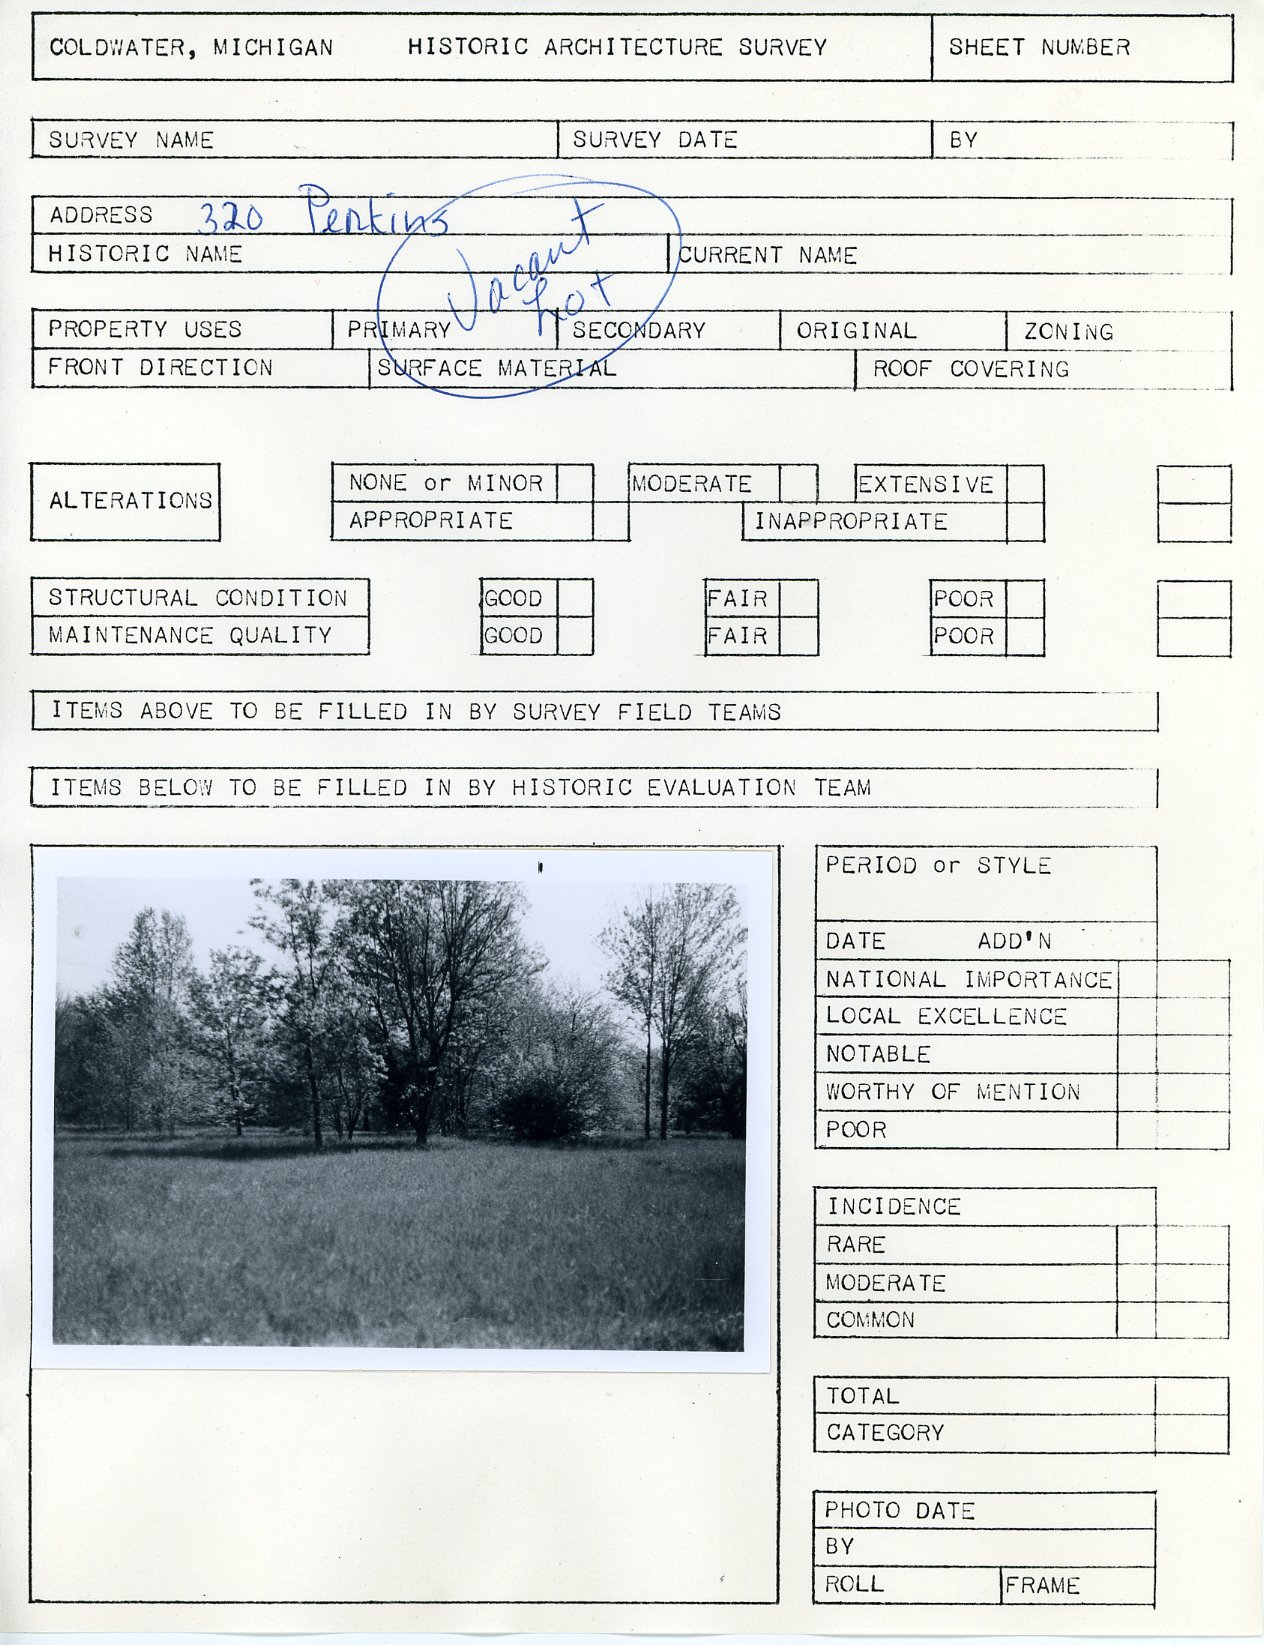 COLDWATER, MICHIGAN HISTORIC ARCHITECTURE SURVEY SHEET NUMBER
SURVEY NAME SURVEY DATE BY
ADDRESS 320 Perkins
HISTORIC NAME CURRENT NAME
Vacant
Lot
PROPERTY USES PRIMARY SECONDARY ORIGINAL ZONING
FRONT DIRECTION SURFACE MATERIAL ROOF COVERING
ALTERATIONS
NONE or MINOR MODERATE EXTENSIVE
APPROPRIATE INAPPROPRIATE
STRUCTURAL CONDITION GOOD FAIR POOR
MAINTENANCE QUALITY GOOD FAIR POOR
ITEMS ABOVE TO BE FILLED IN BY SURVEY FIELD TEAMS
ITEMS BELOW TO BE FILLED IN BY HISTORIC EVALUATION TEAM
PERIOD or STYLE
DATE ADD'N
NATIONAL IMPORTANCE
LOCAL EXCELLENCE
NOTABLE
WORTHY OF MENTION
POOR
INCIDENCE
RARE
MODERATE
COMMON
TOTAL
CATEGORY
PHOTO DATE
BY
ROLL FRAME